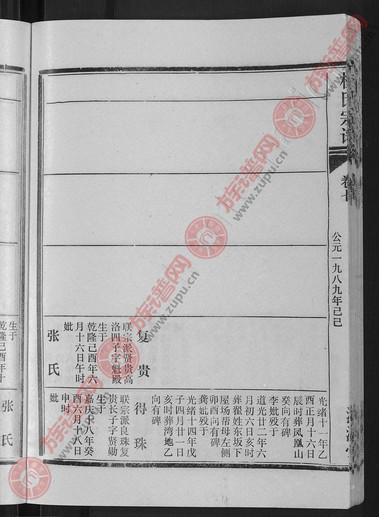 氏宗
卷七
公元一九八九年己巳
复贵
联宗派贤贵高
洛四子字魁殿
生于
乾隆己酉年六
月十六日午时
妣
张氏
生于
乾隆己酉年十
光绪十一年乙
酉正月十六日
辰时葬凤凰山
癸向有碑
李妣殁于
道光廿二年六
月初六日亥时
葬翟姓东坂下
屋场岱母左侧
卯酉向有碑
龚妣殁于
光绪十四年戊
子四月廿一日
亥时葬湾地乙
向有碑
得珠
联宗派良珠复
贵长子字贤勋
生于
嘉庆十八年癸
酉六月十八日
申时
妣
张氏
族谱网
www.zupu.cn